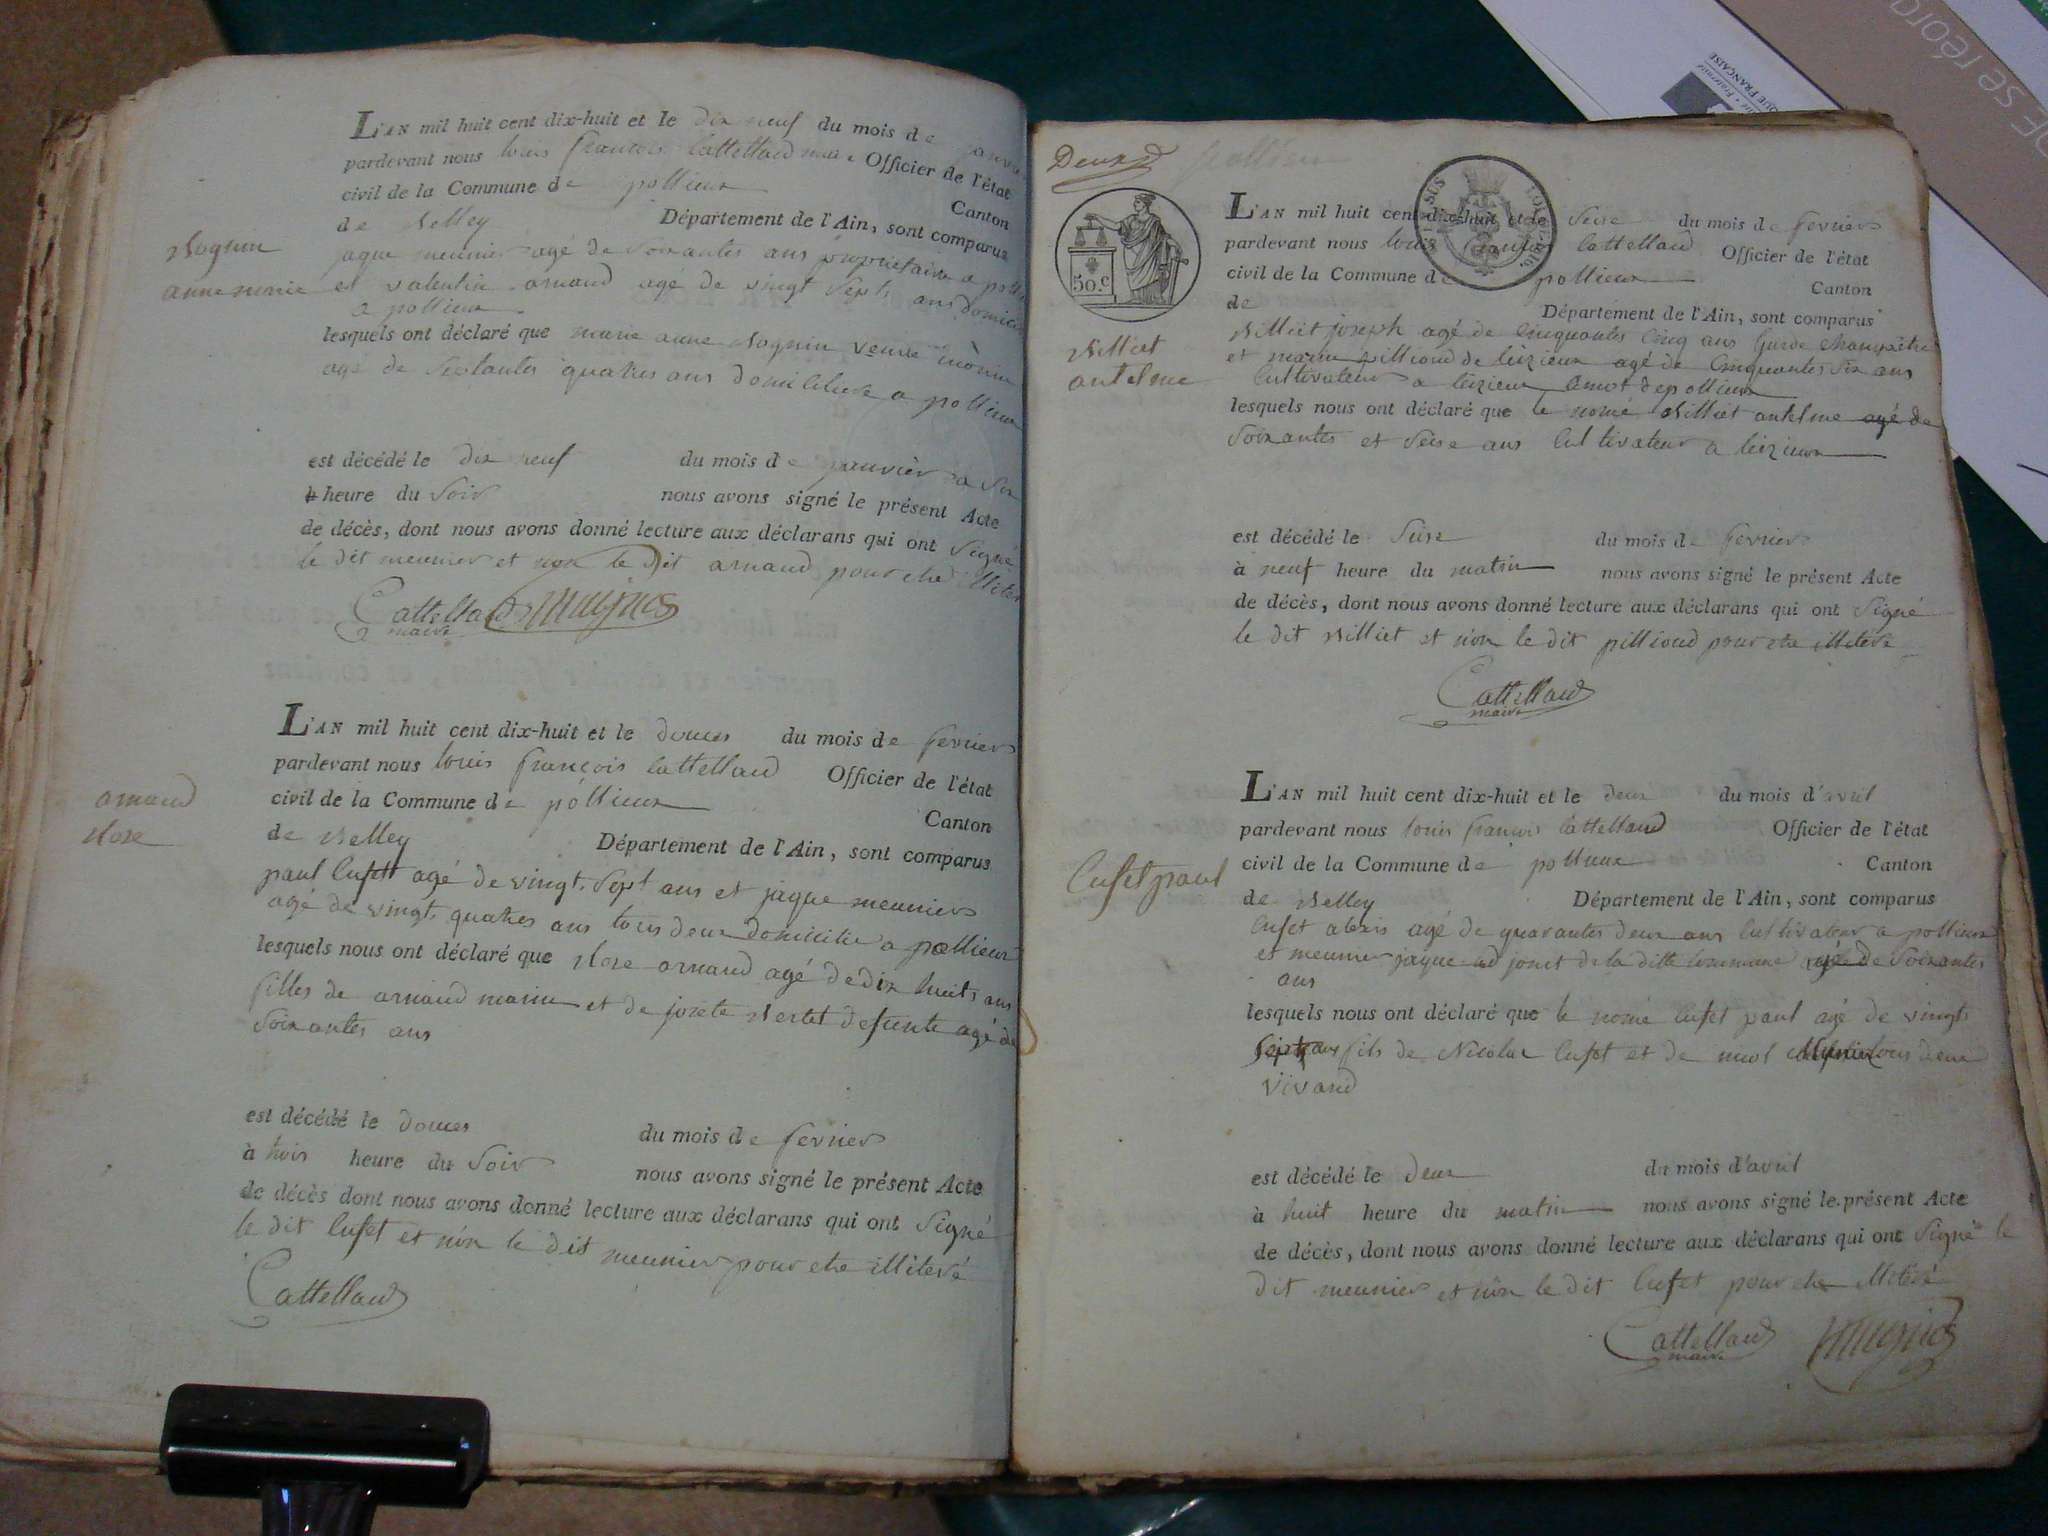 L'AN mil huit cent dix-huit et le dix neuf du mois de janvier
pardevant nous louis francois Cattelland maire Officier de l'état
civil de la Commune de pollieux
Canton
de Belley Département de l'Ain, sont comparus
jaque meunier agé de Soixantes ans propriétaire a
et valentin arnaud agé de vingt Sept ans domicilié
a pollieux
lesquels ont déclaré que marie anne veuve
agé de Septantes quatres ans domiciliere a pollieux
anne marie
est décédé le dix neuf du mois de janvier a Six
heure du Soir nous avons signé le présent Acte
de décès, dont nous avons donné lecture aux déclarans qui ont Signé
le dit meunier et non le dit arnaud pour etre
Cattelland
maire
L'AN mil huit cent dix-huit et le douzes du mois de fevrier
pardevant nous louis françois Cattelland Officier de l'état
civil de la Commune de pollieux
Canton
de Belley Département de l'Ain, sont comparus
arnaud
Rose
paul Cuset agé de vingt Sept ans et jaque meuniers
agé de vingt quatres ans tous deux domicilie a pollieux
lesquels nous ont déclaré que Rose arnaud agé de dix huit ans
filles de arnaud marin et de defunte agé de
Soixantes ans
est décédé le douzes du mois de fevrier
à trois heure du Soir nous avons signé le présent Acte
de décès dont nous avons donné lecture aux déclarans qui ont Signé
le dit Cuset et non le dit meunier pour etre illiteré
Cattelland
Deux
50.c
L'AN mil huit cent dix-huit et le Seise du mois de fevrier
pardevant nous louis Cattelland Officier de l'état
civil de la Commune de pollieux
Canton
de Département de l'Ain, sont comparus
Billiet
antelme
Billiet joseph agé de Cinquantes Cinq ans Garde Champaitre
et marin pillioud de leizieux agé de Cinquantes Six ans
Cultivateur a leizieux
lesquels nous ont déclaré que le nomé Billiet antelme agé de
Soixantes et Seise ans Cultivateur a leizieux
est décédé le Seise du mois de fevrier
à neuf heure du matin nous avons signé le présent Acte
de décès, dont nous avons donné lecture aux déclarans qui ont Signé
le dit Billiet et non le dit pillioud pour etre illiteré
Cattelland
maire
L'AN mil huit cent dix-huit et le deux du mois d'avril
pardevant nous louis francois Cattelland Officier de l'état
civil de la Commune de pollieux Canton
de Belley Département de l'Ain, sont comparus
Cuset paul
Cuset alexis agé de quarantes deux ans Cultivateur a pollieux
et meunier jaque ad joint de la ditte Commune agé de Soixantes
ans
lesquels nous ont déclaré que le nomé Cuset paul agé de vingt
Sept ans fils de Nicolas Cuset et de tous deux
vivand
est décédé le deux du mois d'avril
à huit heure du matin nous avons signé le présent Acte
de décès, dont nous avons donné lecture aux déclarans qui ont Signé le
dit meunier et non le dit Cuset pour etre illiteré
Cattelland
maire